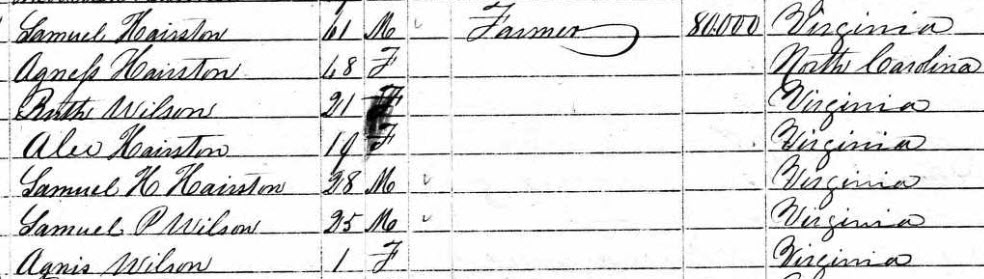 Samuel Hairston 61 M Farmer 80.000 Virginia
Agness Hairston 48 F North Carolina
Ruth Wilson 21 F Virginia
Alec Hairston 19 F Virginia
Samuel H Hairston 28 M Virginia
Samuel P Wilson 25 M Virginia
Agnis Wilson 1 F Virginia